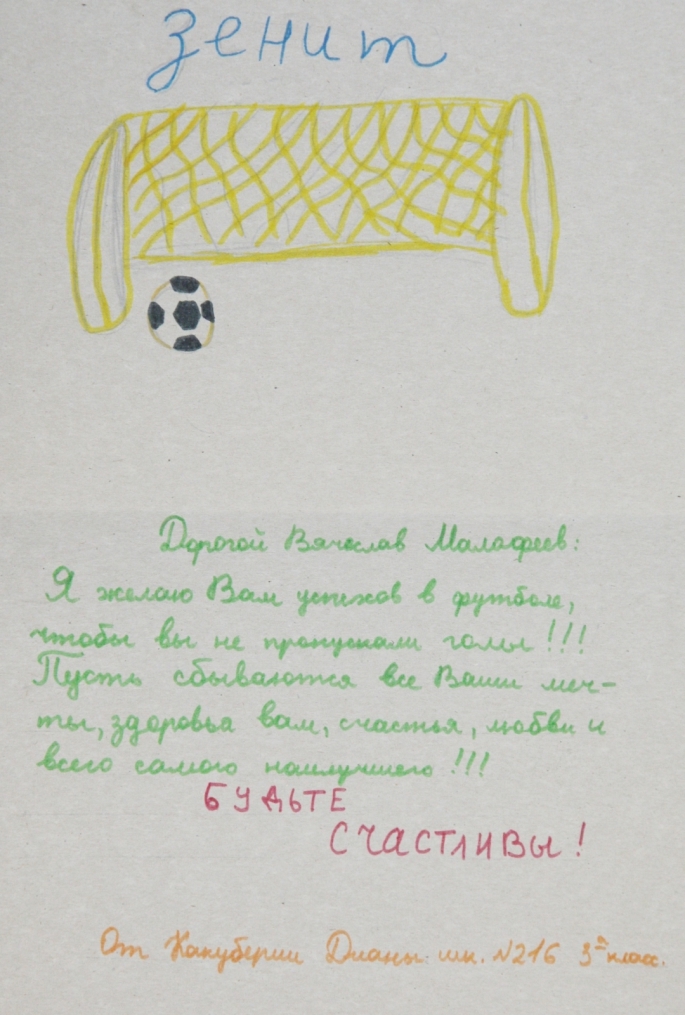 зенит
Дорогой Вячеслав Малафеев:
Я желаю Вам успехов в футболе,
чтобы вы не пропускали голы!!!
Пусть сбываются все Ваши меч-
ты, здоровья вам, счастья, любви и
всего самого наилучшего!!!
БУДЬТЕ
СЧАСТЛИВЫ!
От Какуберии Дианы. шк. №216 3 класс.